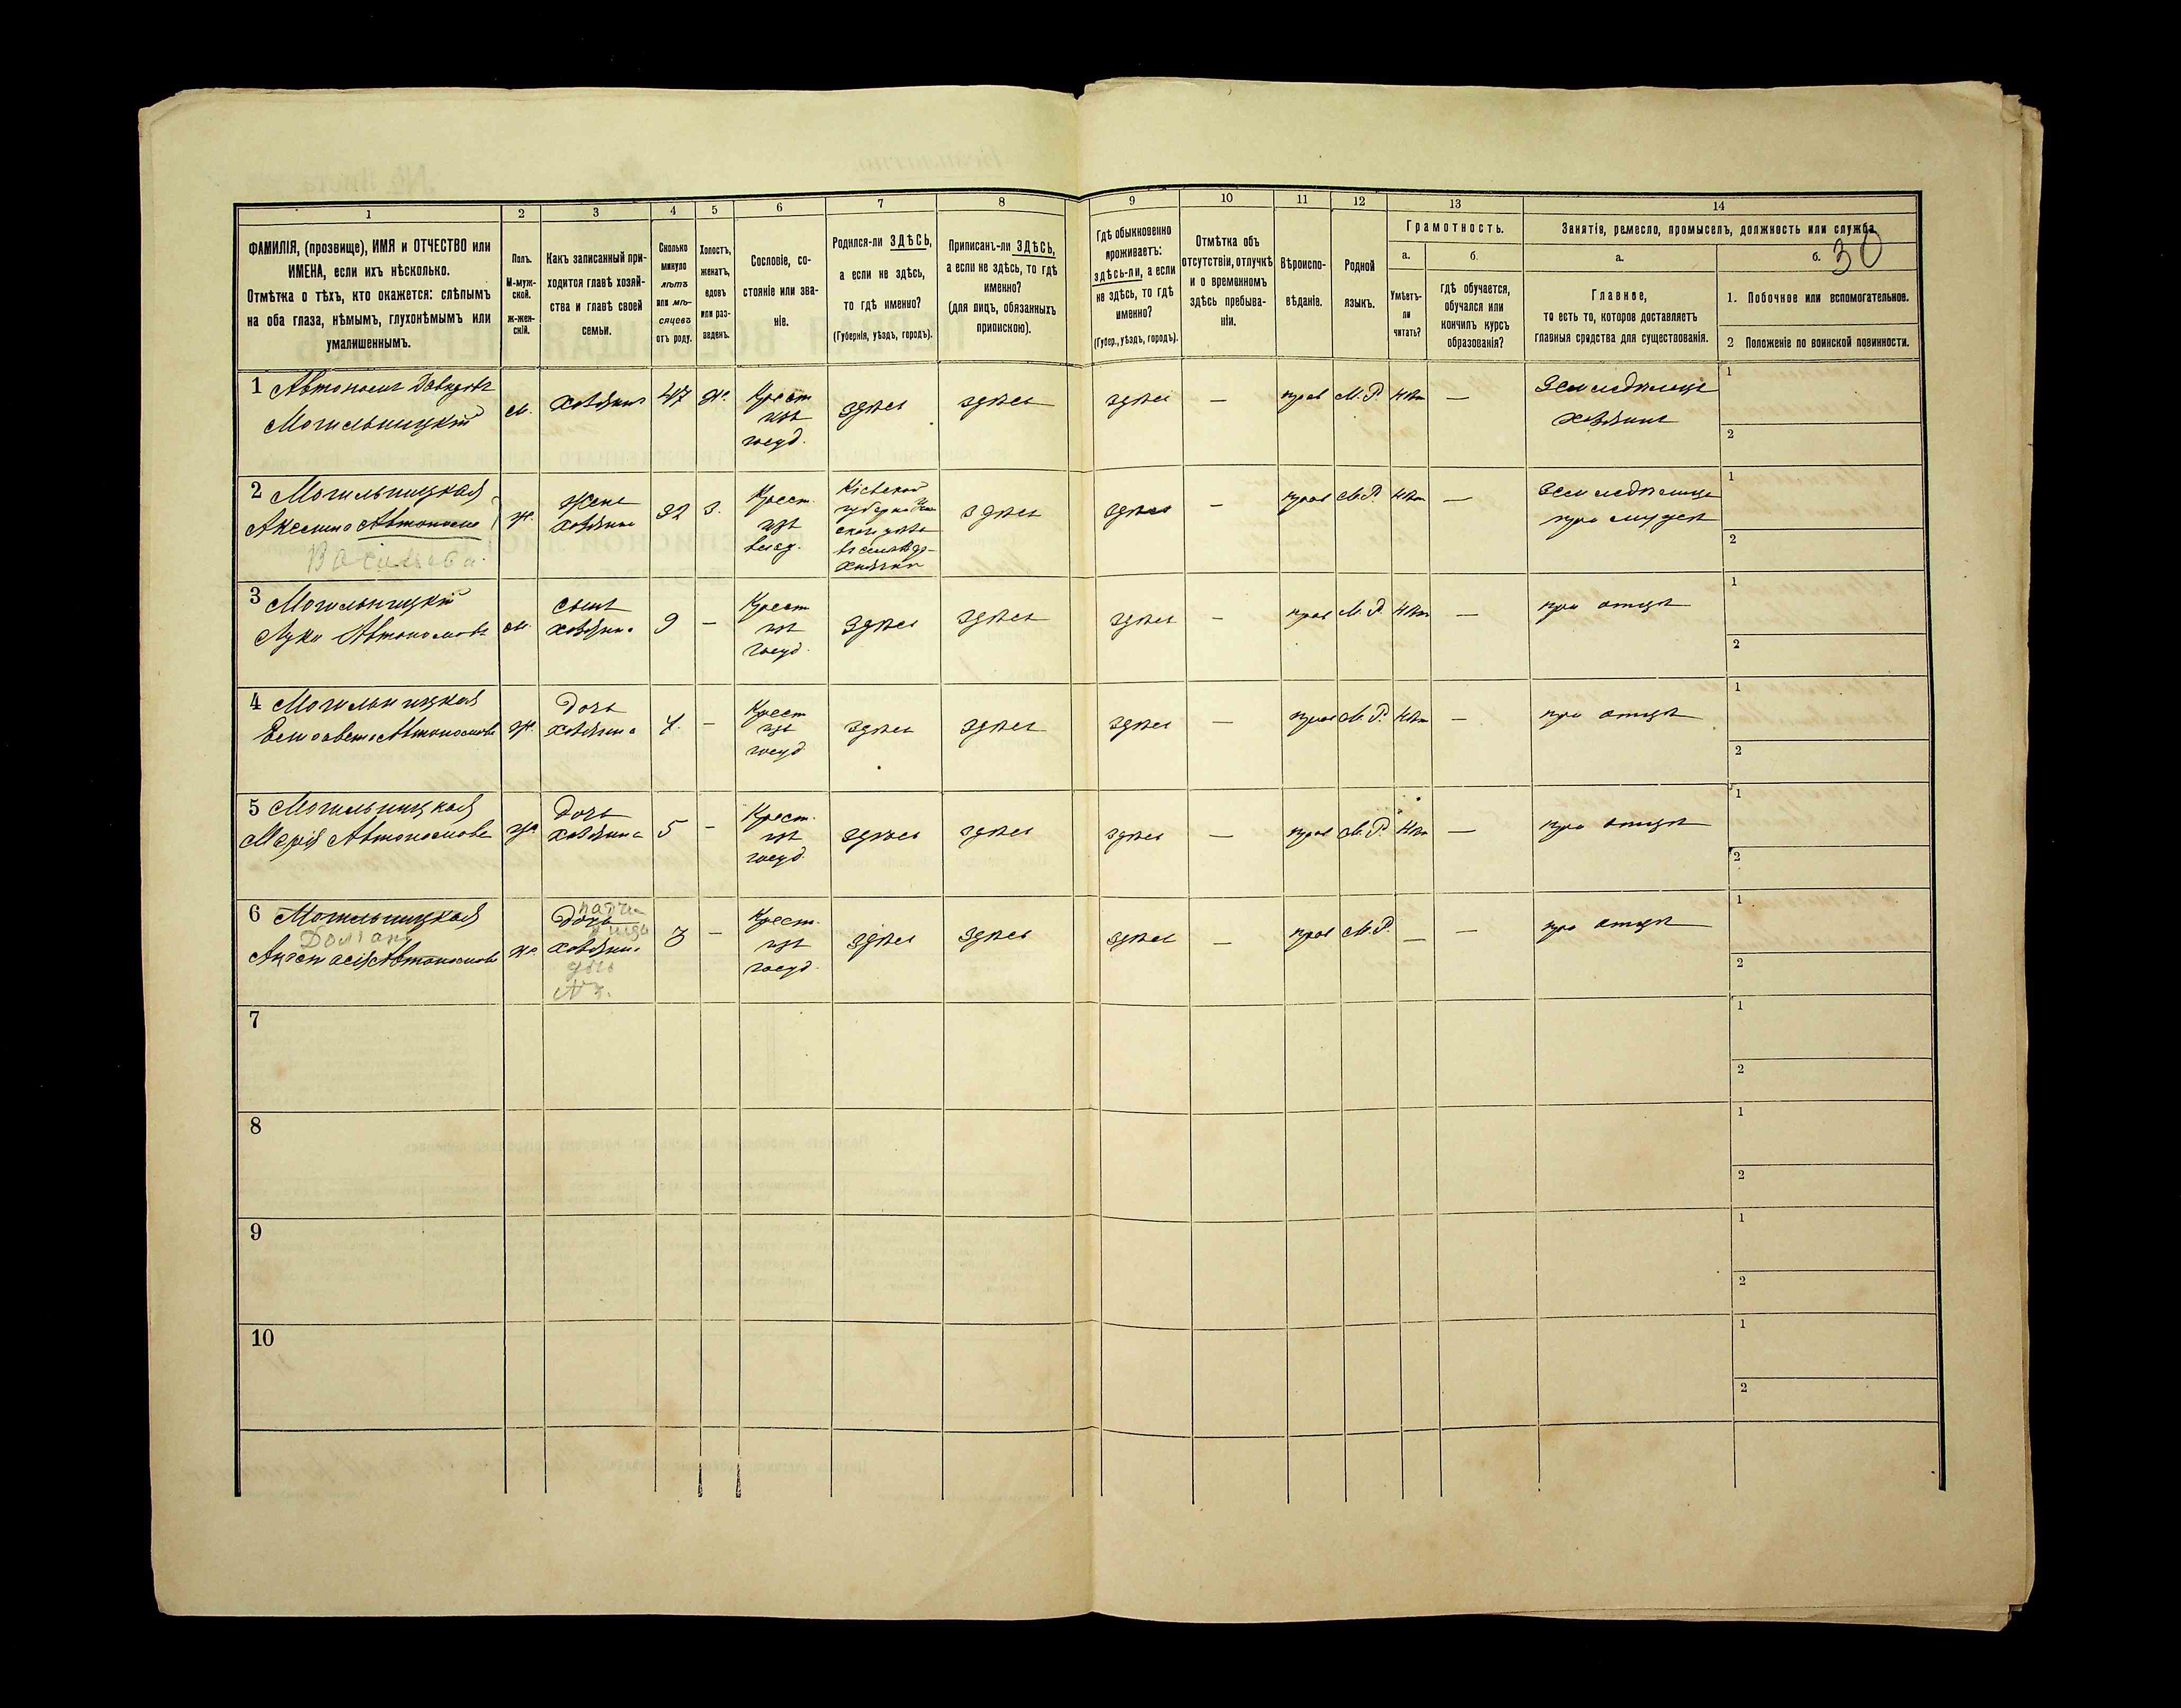 30
1
2
3
4
5
6
7
8
9
10
11
12
13
14
ФАМИЛІЯ, (прозвище), ИМЯ и ОТЧЕСТВО или
ИМЕНА, если ихъ нѣсколько.
Отмѣтка о тѣхъ, кто окажется: слѣпымъ
на оба глаза, нѣмымъ, глухонѣмымъ или
умалишеннымъ.
Полъ.
М-муж-
ской.
ж-жен-
скій.
Какъ записанный при-
ходится главѣ хозяй-
ства и главѣ своей
семьи.
Сколько
минуло
лѣтъ
или мѣ-
сяцевъ
отъ роду.
Холостъ,
женатъ,
вдовъ
или раз-
веденъ.
Сословіе, со-
стояніе или зва-
ніе.
Родился-ли ЗДѢСЬ,
а если не здѣсь,
то гдѣ именно?
(Губернія, уѣздъ, городъ).
Приписанъ-ли ЗДѢСЬ,
а если не здѣсь, то гдѣ
именно?
(для лицъ, обязанныхъ
припискою).
Гдѣ обыкновенно
проживаетъ:
здѣсь-ли, а если
не здѣсь, то гдѣ
именно?
(Губер., уѣздъ, городъ).
Отмѣтка объ
отсутствіи, отлучкѣ
и о временномъ
здѣсь пребыва-
ніи.
Вѣроиспо-
вѣданіе.
Родной
языкъ.
Грамотность.
а.
Умѣетъ-
ли
читать?
б.
гдѣ обучается,
обучался или
кончилъ курсъ
образованія?
Занятія, ремесло, промыселъ, должность или служба.
а.
Главное,
то есть то, которое доставляетъ
главныя средства для существованія.
б.
1. Побочное или вспомогательное.
2 Положеніе по воинской повинности.
1 Автономъ Давидовъ
Могильницкій
м.
хозяинъ
47
ж.
Крест
изъ
госуд.
здѣсь
здѣсь
здѣсь
—
прав
М. Р.
нѣт
—
Земледѣлецъ
хозяинъ
1
2
2 Могильницкая
Аксенія Автономова
Васильева
ж.
Жена
хозяина
32
з.
Крест.
изъ
Кіевской
губерніи
здѣсь
здѣсь
—
прав
М. Р.
нѣт
—
земледѣлица
при мужѣ
1
2
3 Могильницкій
Лука Автономовъ
м.
сынъ
хозяина
9
—
Крест
изъ
госуд.
здѣсь
здѣсь
здѣсь
—
прав
М. Р.
нѣт
—
при отцѣ
1
2
4 Могильницкая
Елисавета Автономова
ж.
Дочь
хозяина
7.
—
Крест
изъ
госуд
здѣсь
здѣсь
здѣсь
—
прав
М. Р.
нѣт
—
при отцѣ
1
2
5 Могильницкая
Марія Автономова
ж.
Дочь
хозяина
5
—
Крест.
изъ
госуд.
здѣсь
здѣсь
здѣсь
—
прав
М. Р.
нѣт
—
при отцѣ
1
2
6 Могильницкая
Анастасія Автономова
ж.
Дочь
хозяина
3
—
Крест.
изъ
госуд.
здѣсь
здѣсь
здѣсь
—
прав
М. Р.
—
—
при отцѣ
1
2
7
1
2
8
1
2
9
1
2
10
1
2